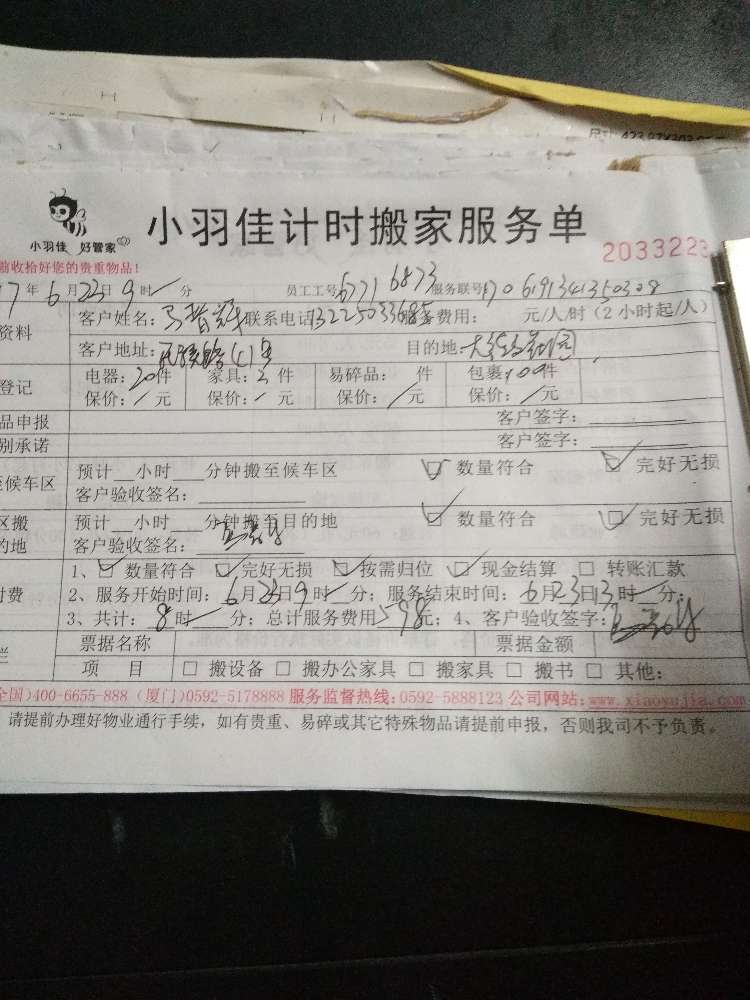 小羽佳 好管家
小羽佳计时搬家服务单
2033223
前收拾好您的贵重物品!
7年6月23日9时/分 员工工号67716873服务联号1706191341350308
资料 客户姓名: 联系电话13225033685服务费用: 元/人/时(2小时起/人)
客户地址: 目的地:
登记 电器:20件 家具:2件 易碎品: 件 包裹:100件
保价:/元 保价:/元 保价:/元 保价:/元
品申报 客户签字:
别承诺 客户签字:
至候车区 预计 小时 分钟搬至候车区 ☑ 数量符合 ☑ 完好无损
客户验收签名:
区搬的地 预计 小时 分钟搬至目的地 ☑ 数量符合 ☑ 完好无损
客户验收签名:
付费 1、☑ 数量符合 ☑ 完好无损 ☑ 按需归位 ☑ 现金结算 □ 转账汇款
2、服务开始时间:6月23日9时/分;服务结束时间:6月23日13时/分;
3、共计:8时/分;总计服务费用598元;4、客户验收签字:
栏 票据名称 票据金额
项 目 □ 搬设备 □ 搬办公家具 □ 搬家具 □ 搬书 □ 其他:
全国)400-6655-888 (厦门)0592-5178888 服务监督热线:0592-5888123 公司网站:www.xiaoyujia.com
请提前办理好物业通行手续,如有贵重、易碎或其它特殊物品请提前申报,否则我司不予负责。